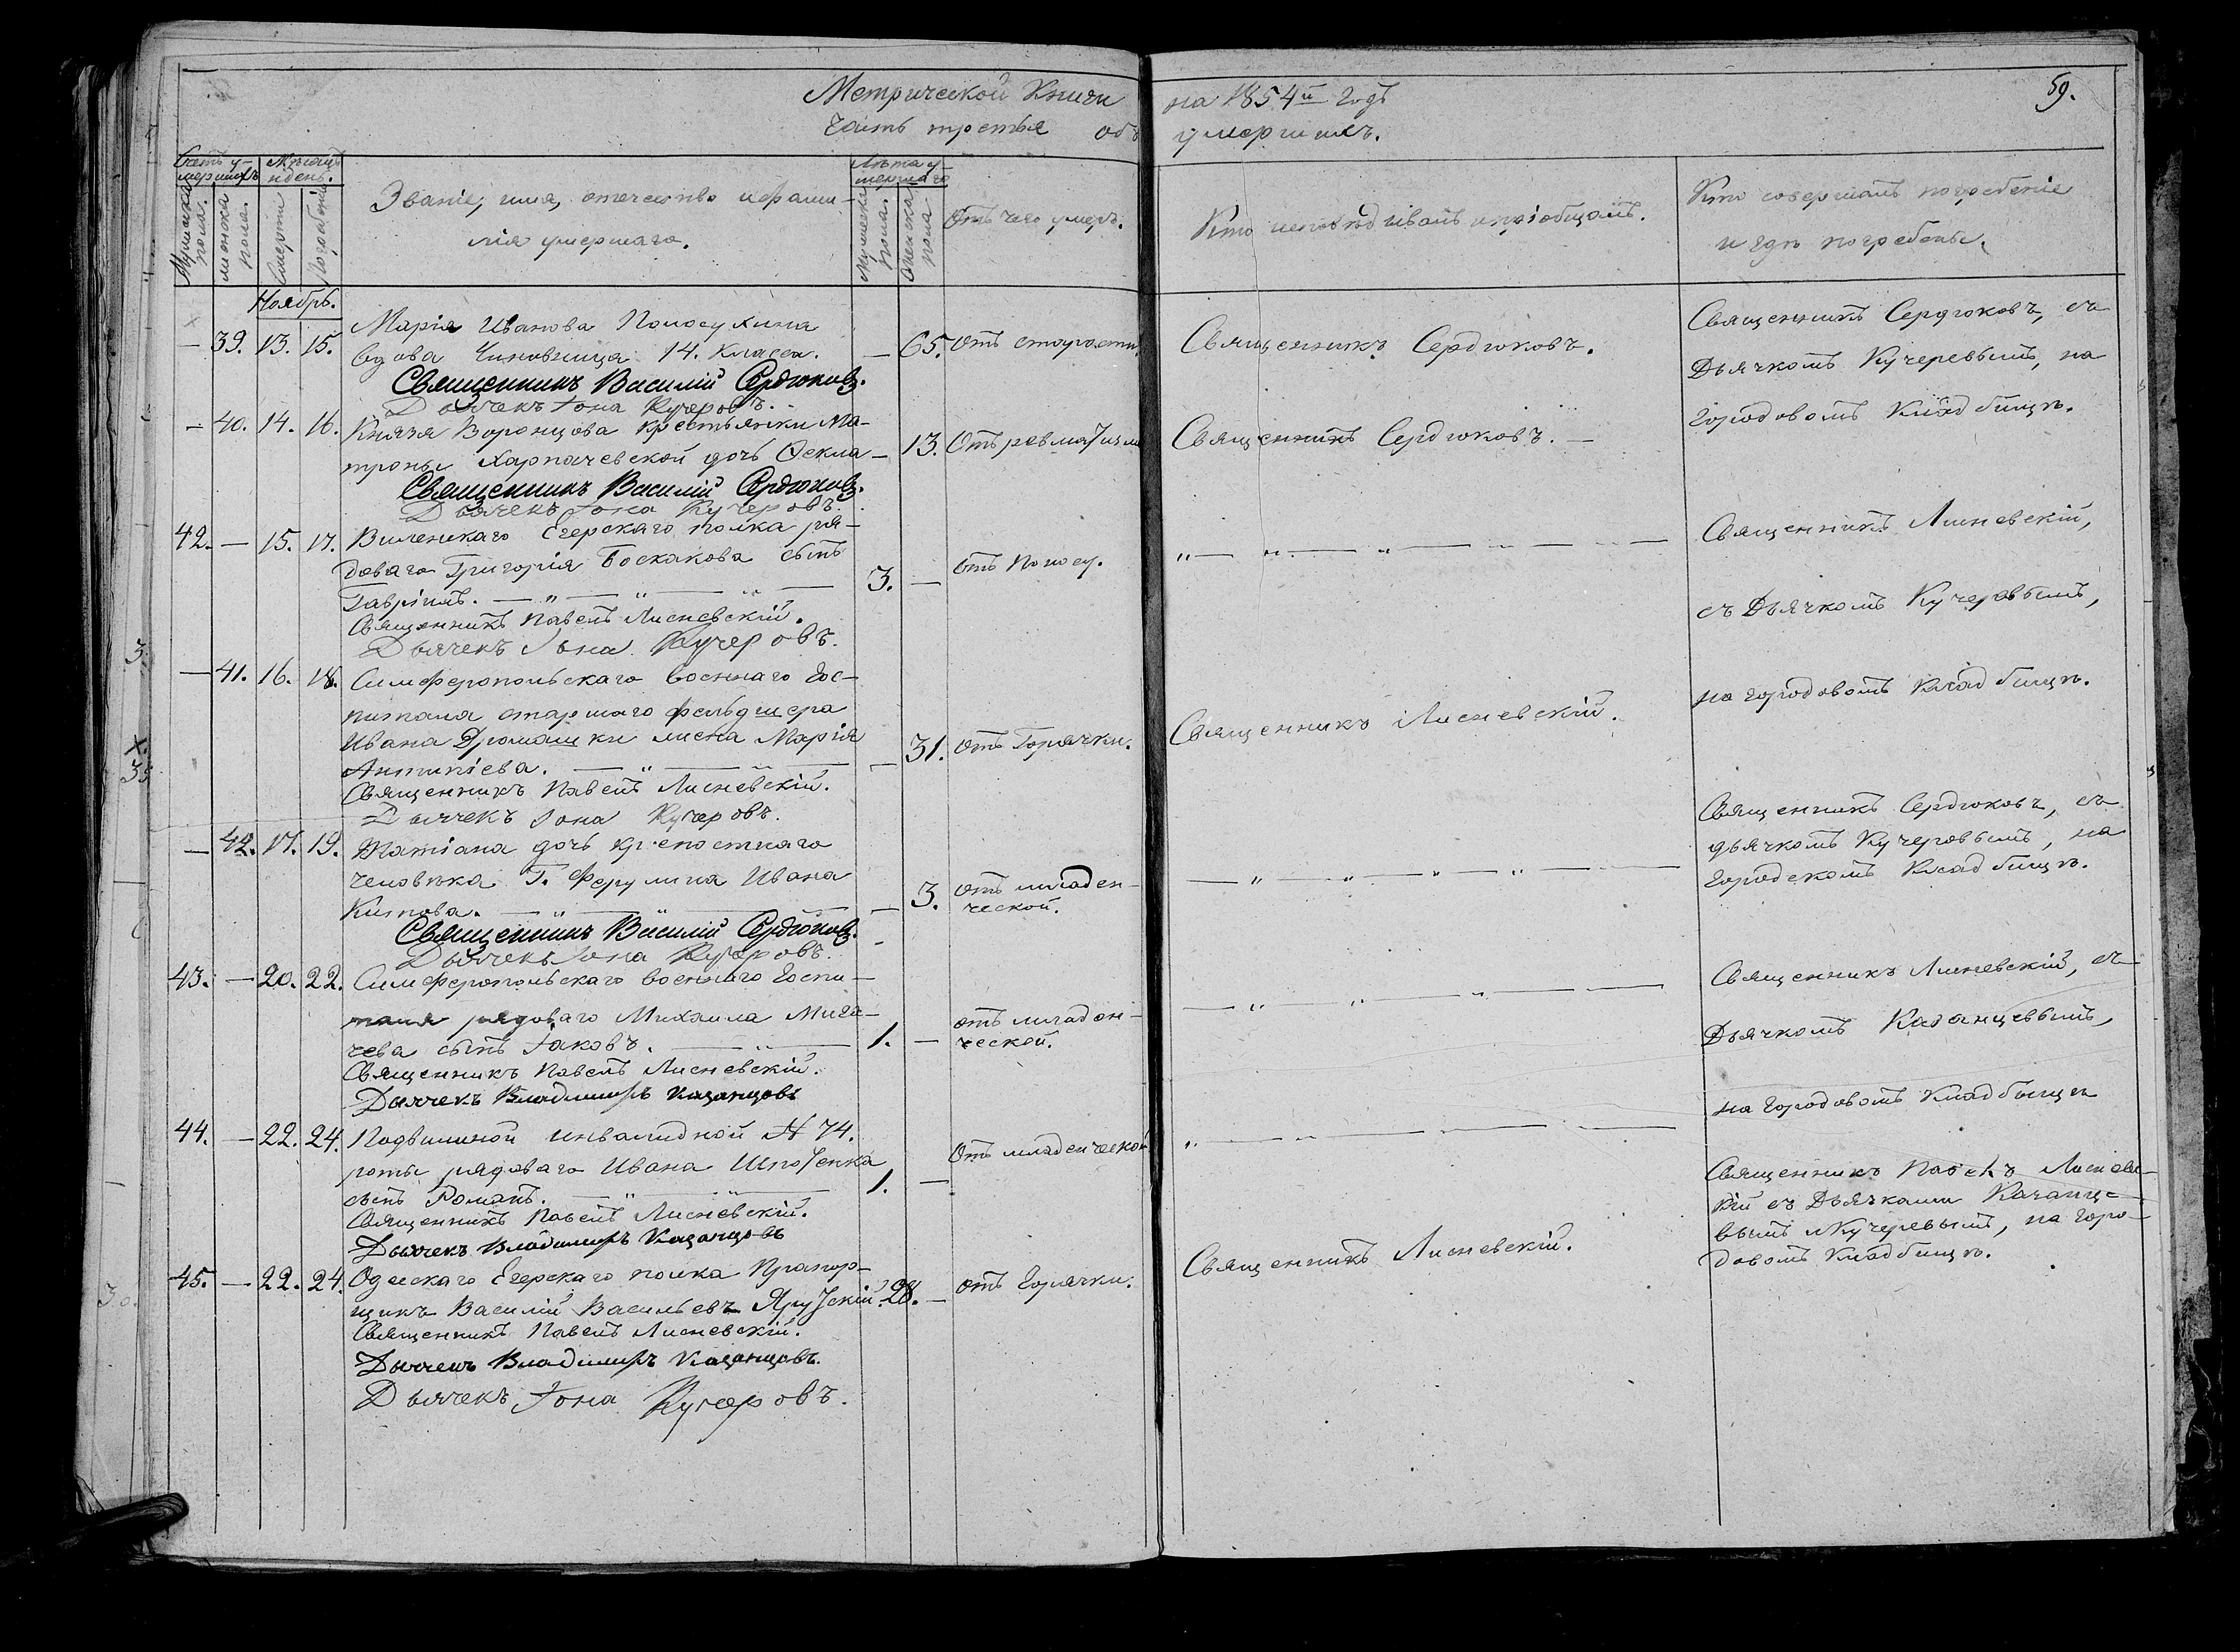 Метрической Книги на 1854й Годъ
59.
Часть третья объ умершихъ.
Счетъ умершихъ
Мужеска пола.
женска пола.
Мѣсяцъ и день.
Смерти
Погребенія
Званіе, имя, отечество и фами-
лія умершаго.
Лѣта умершаго
Мужеска пола.
Женска пола
Отъ чего умеръ.
Кто исповѣдывалъ и пріобщалъ.
Кто совершалъ погребеніе
и гдѣ погребены.
Ноябрь.
— 39. 13. 15. Марія Иванова Полосухина
вдова Чиновница 14. класса. — 65. Отъ старости.
Священникъ Василій Сердюковъ.
Дьячекъ Іона Кучеровъ.
Священникъ Сердюковъ.
Священникъ Сердюковъ, съ
Дьячкомъ Кучеровымъ, на
Городовомъ Кладбищѣ.
— 40. 14. 16. Князя Воронцова крестьянки Ма-
троны Харпачевской дочь Ѳекла — 13. Отъ ревматизма
Священникъ Василій Сердюковъ.
Дьячекъ Іона Кучеровъ.
Священникъ Сердюковъ. —
42. — 15. 17. Виленскаго Егерскаго полка ря-
доваго Григорія Боскакова сынъ
Гавріилъ. 3. — отъ Поносу.
Священникъ Павелъ Лисневскій.
Дьячекъ Іона Кучеровъ.
Священникъ Лисневскій,
съ Дьячкомъ Кучеровымъ,
на городовомъ кладбищѣ.
— 41. 16. 18. Симферопольскаго военнаго Гос-
питаля старшаго фельдшера
Ивана Дромашки жена Марія
Антипіева. — 31. отъ Горячки.
Священникъ Павелъ Лисневскій.
Дьячекъ Іона Кучеровъ.
Священникъ Лисневскій.
— 42. 17. 19. Татіана дочь крѣпостнаго
человѣка Г. Ферулина Ивана
Китова. — 3. отъ младен-
ческой.
Священникъ Василій Сердюковъ.
Дьячекъ Іона Кучеровъ.
Священникъ Сердюковъ, съ
дьячкомъ Кучеровымъ, на
Городскомъ Кладбищѣ.
43. — 20. 22. Симферопольскаго военнаго Госпи-
таля рядоваго Михаила Мига-
чева сынъ Іаковъ. 1. — отъ младен-
ческой.
Священникъ Павелъ Лисневскій.
Дьячекъ Владимиръ Казанцовъ
Священникъ Лисневскій, съ
Дьячкомъ Казанцевымъ,
на Городовомъ Кладбищѣ
44. — 22. 24. Подвижной инвалидной № 74.
роты рядоваго Ивана Шпотенка
сынъ Романъ. 1. — Отъ младенческой
Священникъ Павелъ Лисневскій.
Дьячекъ Владимиръ Казанцовъ
Священникъ Павелъ Лиснев-
кій съ Дьячками Казанце-
вымъ и Кучеровымъ, на Горо-
довомъ Кладбищѣ.
45. — 22. 24. Одесскаго Егерскаго полка Прапор-
щикъ Василій Васильевъ Ярутскій. 28. — отъ Горячки.
Священникъ Павелъ Лисневскій.
Дьячекъ Владимиръ Казанцовъ.
Дьячекъ Іона Кучеровъ.
Священникъ Лисневскій.